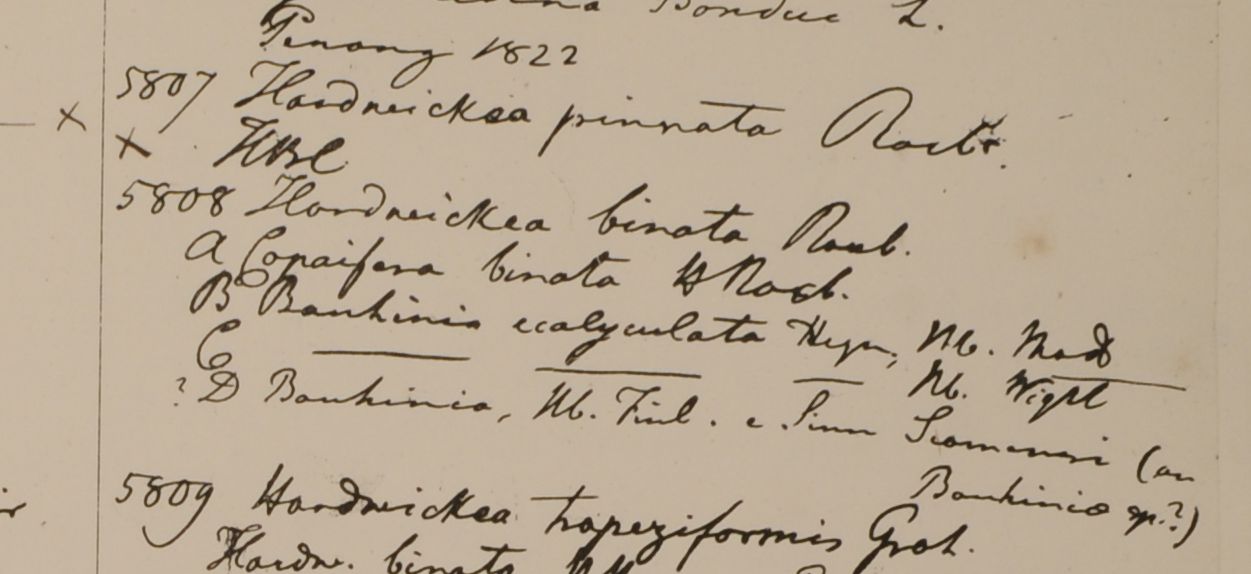 Bonduc L.
Penang 1822
5807 Hardwickea pinnata Roxb.
x HBC
5808 Hardwickea binata Roxb.
A Copaifera binata H Roxb.
B Bauhinia ecalyculata Heyn, Hb. Mad
C Hb. Wight
? D Bauhinia, Hb. Finl. e Sinu Siamensi (an
Bauhiniae sp.?)
5809 Hardwickea trapeziformis Grah.
Hardw. binata